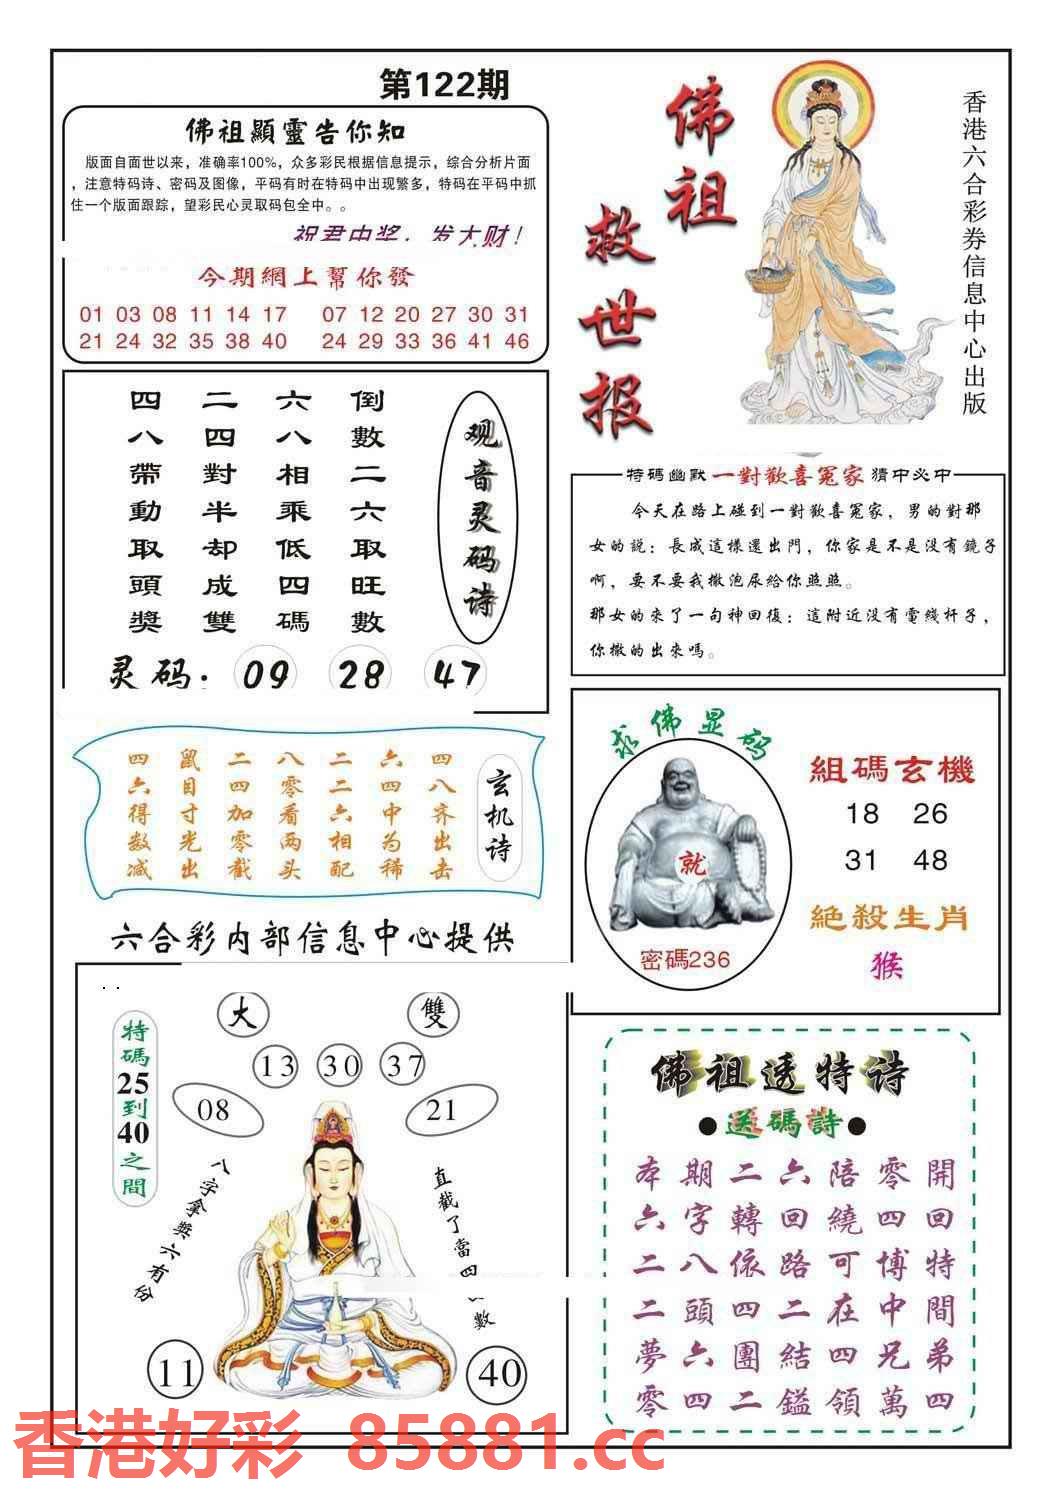 第122期
佛祖顯靈告你知
版面自面世以来，准确率100%，众多彩民根据信息提示，综合分析片面
，注意特码诗、密码及图像，平码有时在特码中出现繁多，特码在平码中抓
住一个版面跟踪，望彩民心灵取码包全中。。
祝君中奖，发大财！
今期網上幫你發
01 03 08 11 14 17 07 12 20 27 30 31
21 24 32 35 38 40 24 29 33 36 41 46
佛祖救世报
香港六合彩券信息中心出版
观音灵码诗
倒數二六取旺數
六八相乘低四碼
二四對半却成雙
四八帶動取頭獎
灵码：09 28 47
特碼幽默 一對歡喜冤家 猜中必中
今天在路上碰到一對歡喜冤家，男的對那
女的說：長成這樣還出門，你家是不是没有鏡子
啊，要不要我撒泡尿給你照照。
那女的來了一句神回復：這附近没有電线杆子，
你撒的出來嗎。
玄机诗
四八齐出击
六四中为稀
二二六相配
八零看两头
二四加零截
鼠目寸光出
四六得数减
求佛显码
就
密碼236
組碼玄機
18 26
31 48
絶殺生肖
猴
六合彩内部信息中心提供
大 雙
13 30 37
08 21
特碼25到40之間
八字拿奖六有份
直截了當四
數
11 40
佛祖透特诗
●送碼詩●
本期二六陪零開
六字轉回繞四回
二八依路可博特
二頭四二在中間
夢六團結四兄弟
零四二鎰領萬四
香港好彩 85881.cc